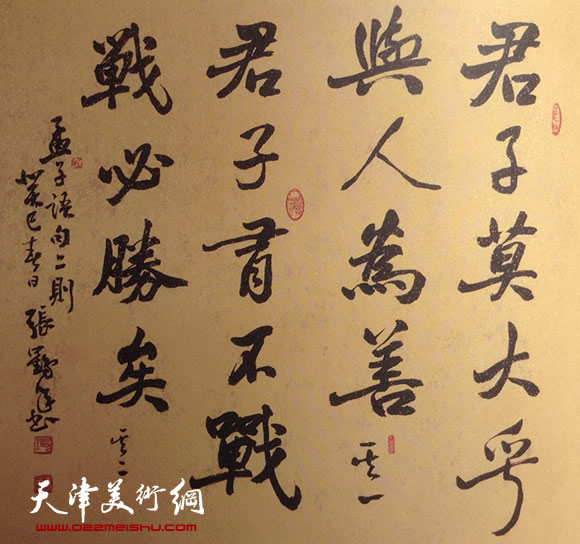 君子莫大乎
與人為善 其一
君子有不戰
戰必勝矣 其二
孟子語句二則
癸巳春日 張
天津美術網
www.022meishu.com